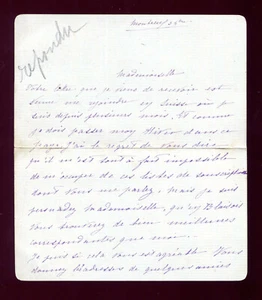 repondu
Montreux 25
Mademoiselle
Votre lettre que je viens de recevoir est
venue me rejoindre en Suisse où je
suis depuis plusieurs mois. Et comme
je dois passer mon Hiver dans ce
pays, j'ai le regret de vous dire
qu'il m'est tout à fait impossible
de m'occuper de ces listes de souscription
dont vous me parlez, mais je suis
persuadée Mademoiselle, qu'en
vous trouverez de bien meilleures
correspondantes que moi.
Je puis si cela vous est agréable vous
donner l'adresse de quelques amies